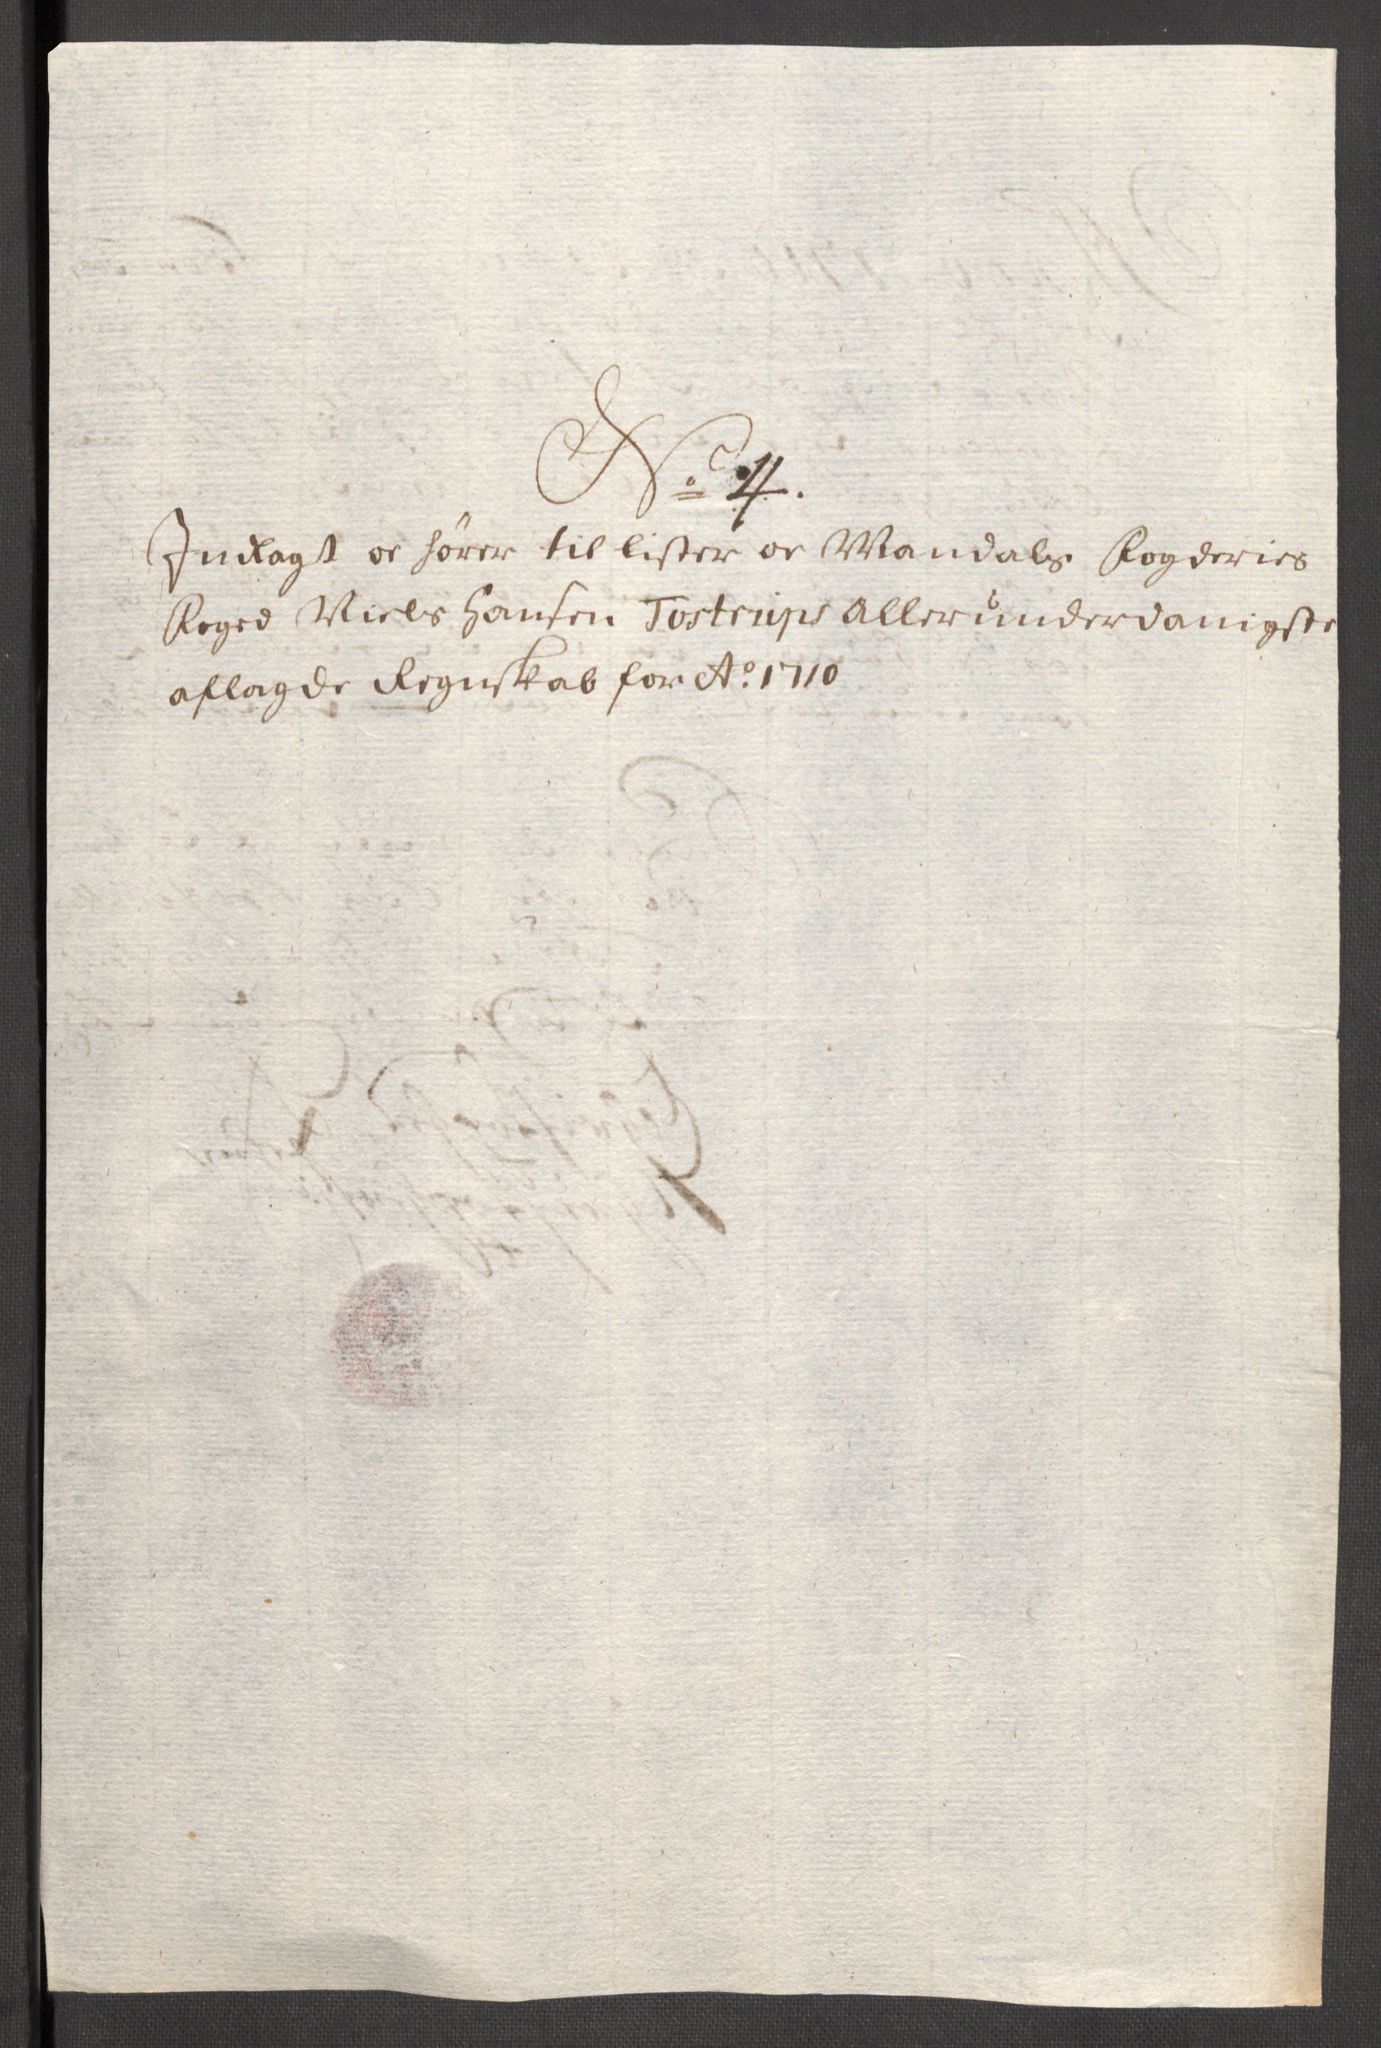 No 4.
Indlagt oc hörer til Lister oc Mandals Fogderies
Foged Niels Hansen Tostrups Allerunderdanigste
aflagde Regnskab for Ao. 1710